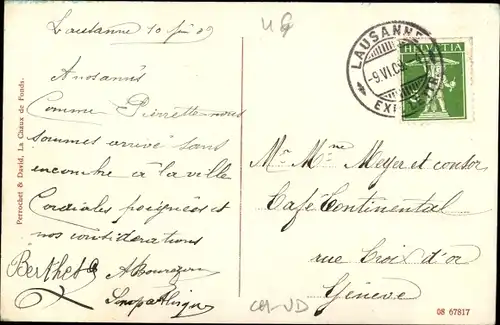 Lausanne 10 Jui 09
Comme Pierrette nous
sommes arrivé sans
encombre à la ville
Cordiales poignées et
nos considérations
Berthet
Perrochet & David, La Chaux de Fonds.
LAUSANNE
-9.VI.09
EXP.
HELVETIA
Mr Mme Meyer et
Café Continental
rue Croix d'or
Genève
CH-VD
08 67817